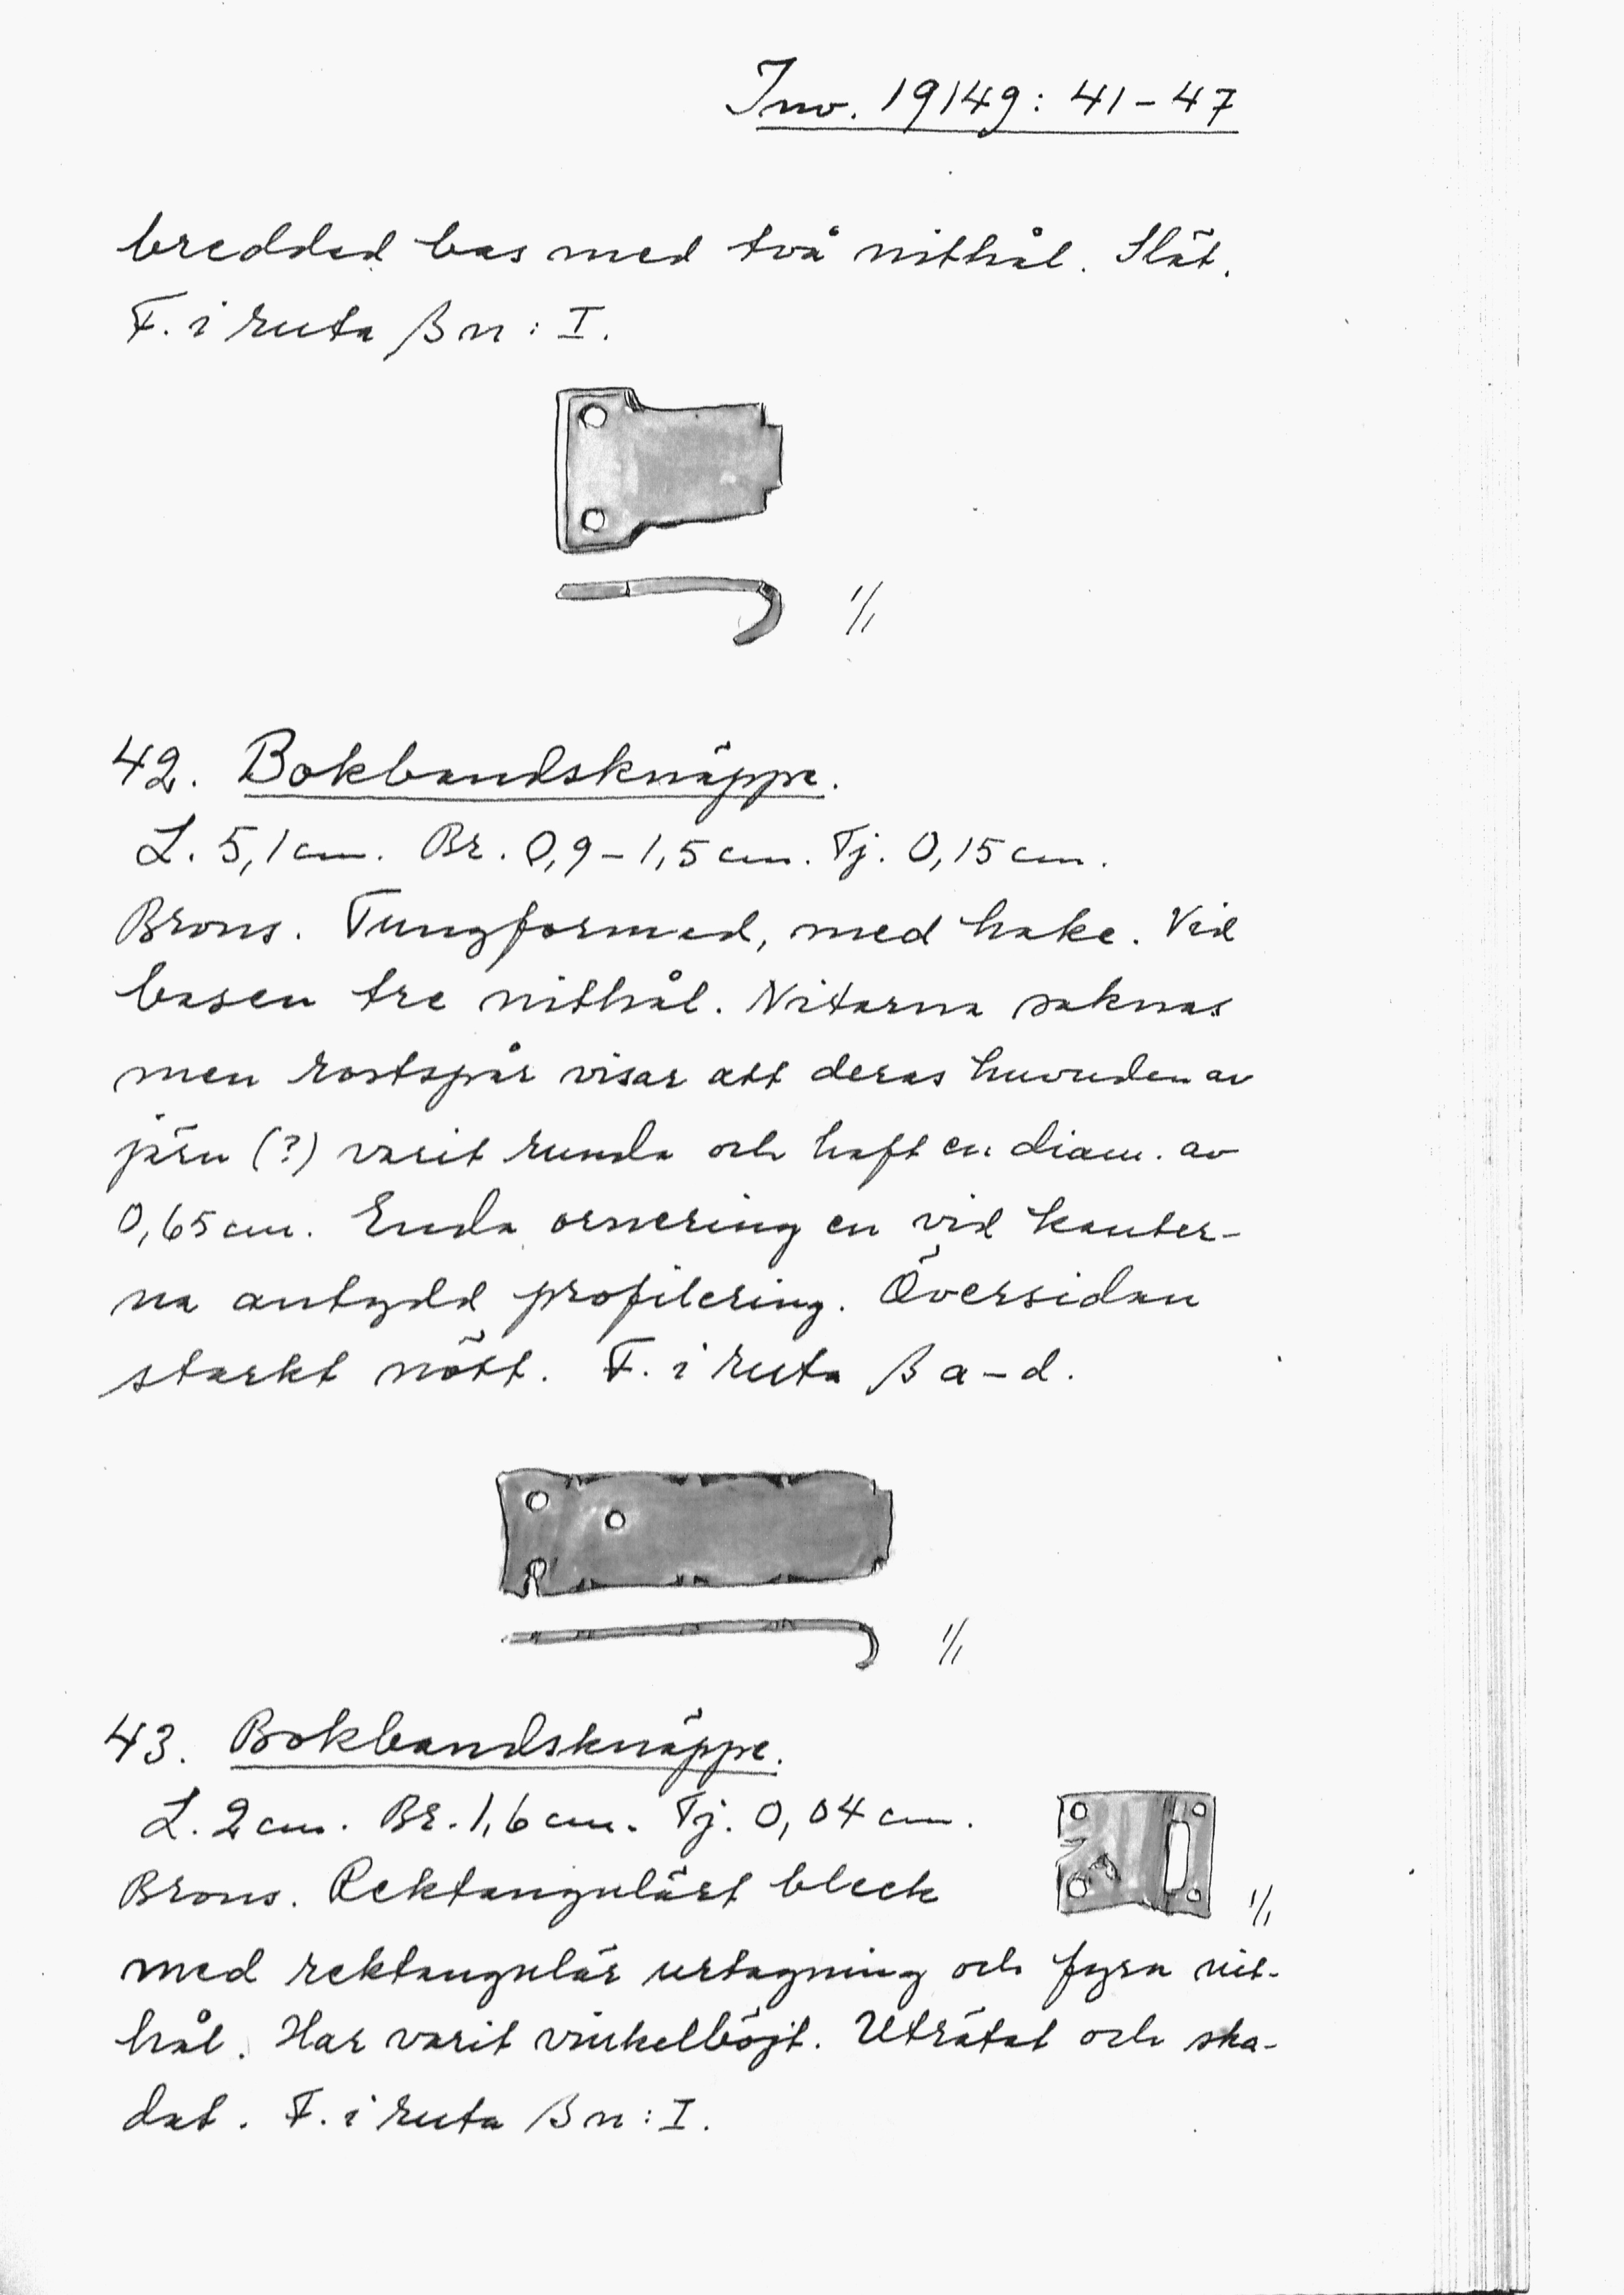 Inv. 19149: 41-47
breddad bas med två nithål. Slät.
F. i ruta β n: I.
1/1
42. Bokbandsknäppe.
L. 5,1 cm. Br. 0,9-1,5 cm. Tj. 0,15 cm.
Brons. Tungformad, med hake. Vid
basen tre nithål. Nitarna saknas
men rostspår visar att deras huvuden av
järn (?) varit runda och haft en diam. av
0,65 cm. Enda ornering en vid kanter-
na antydd profilering. Översidan
starkt nött. F. i ruta β a-d.
1/1
43. Bokbandsknäppe.
L. 2 cm. Br. 1,6 cm. Tj. 0,04 cm.
Brons. Rektangulärt bleck
1/1
med rektangulär urtagning och fyra nit-
hål. Har varit vinkelböjt. Uträtat och ska-
dat. F. i ruta β n: I.